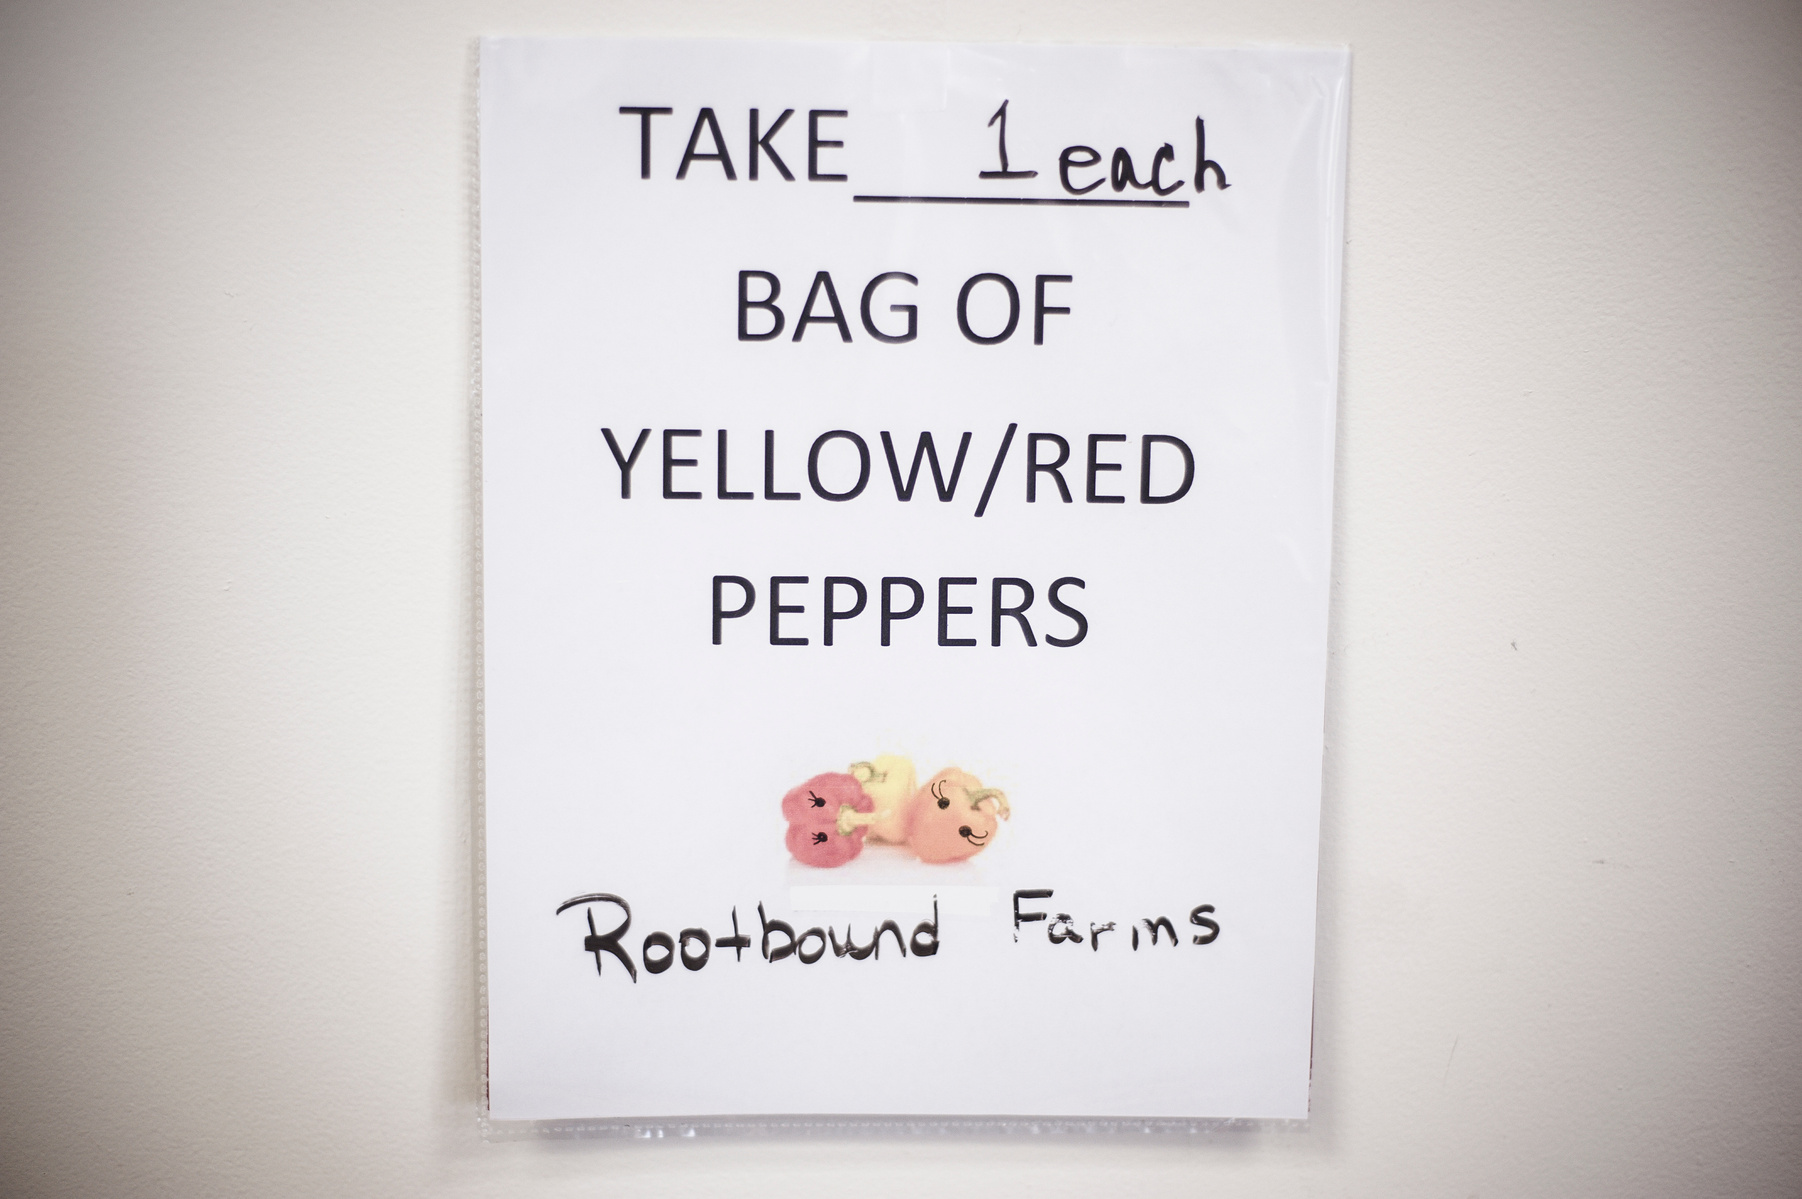 TAKE 1 each
BAG OF
YELLOW/RED
PEPPERS
Rootbound Farms